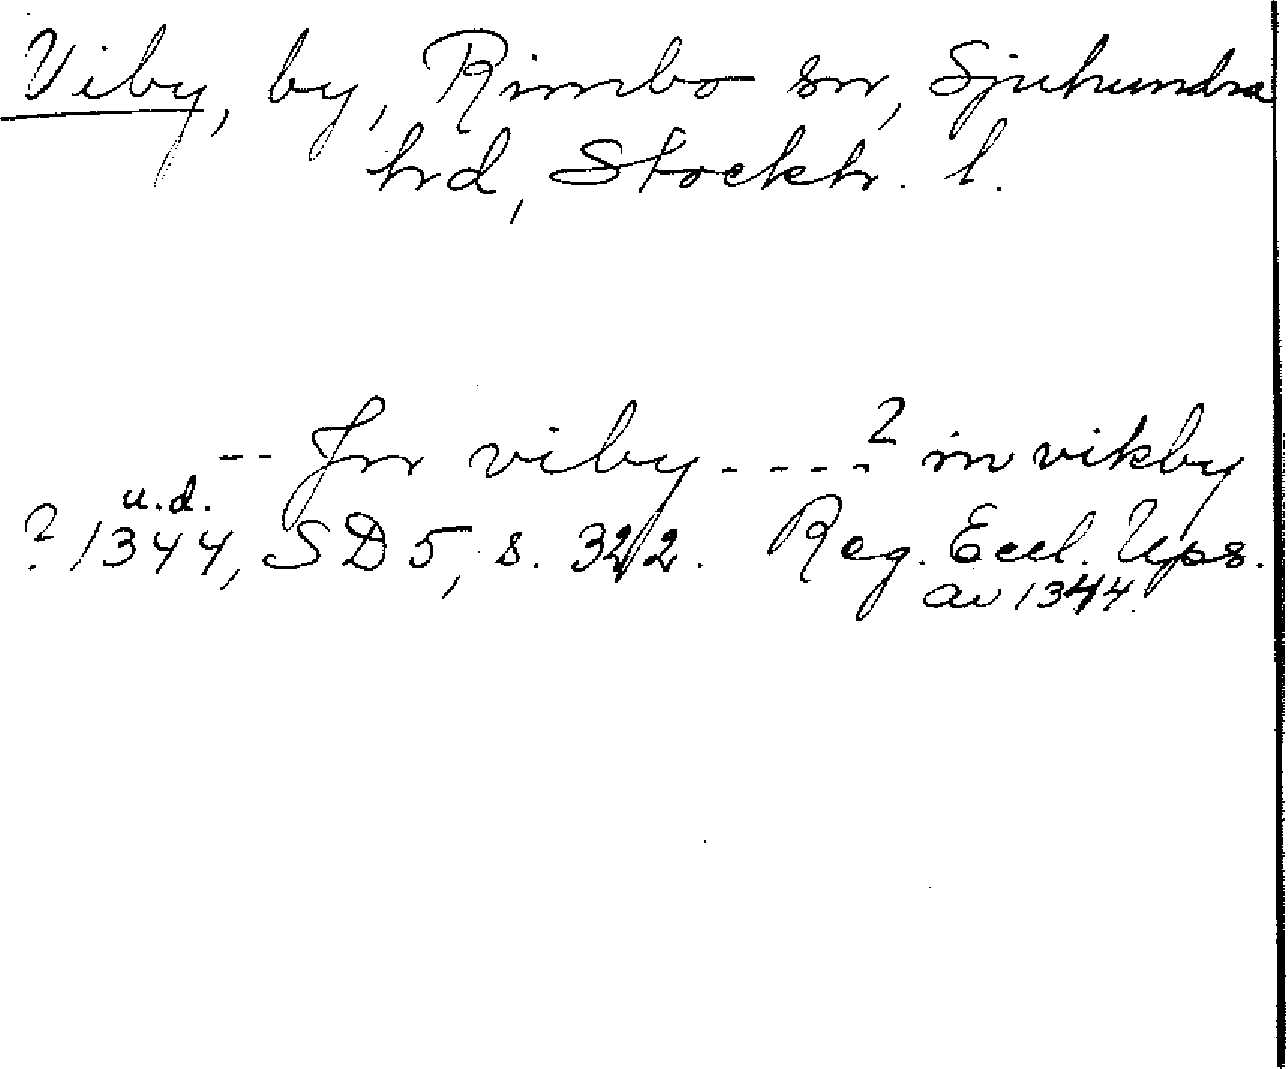 Viby, by, Rimbo sn, Sjuhundra
hrd, Stockh. l.
-- Jn viby - - - - ? in vikby
? u.d. 1344, SD 5, s. 322. Reg. Eccl. Ups.
av 1344.